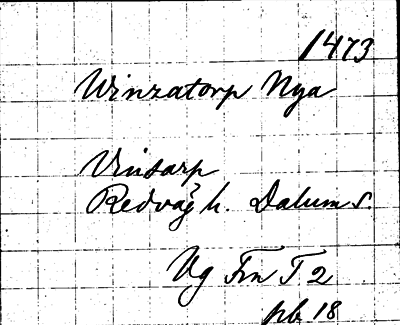 1473
Winzatorp Nya
Vinsarp
Redväg h. Dalum s.
Vg Frn T 2
pb 18